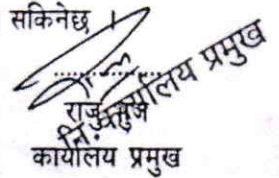 सकिनेछ ।
राजु
नि. कार्यालय प्रमुख
कार्यालय प्रमुख